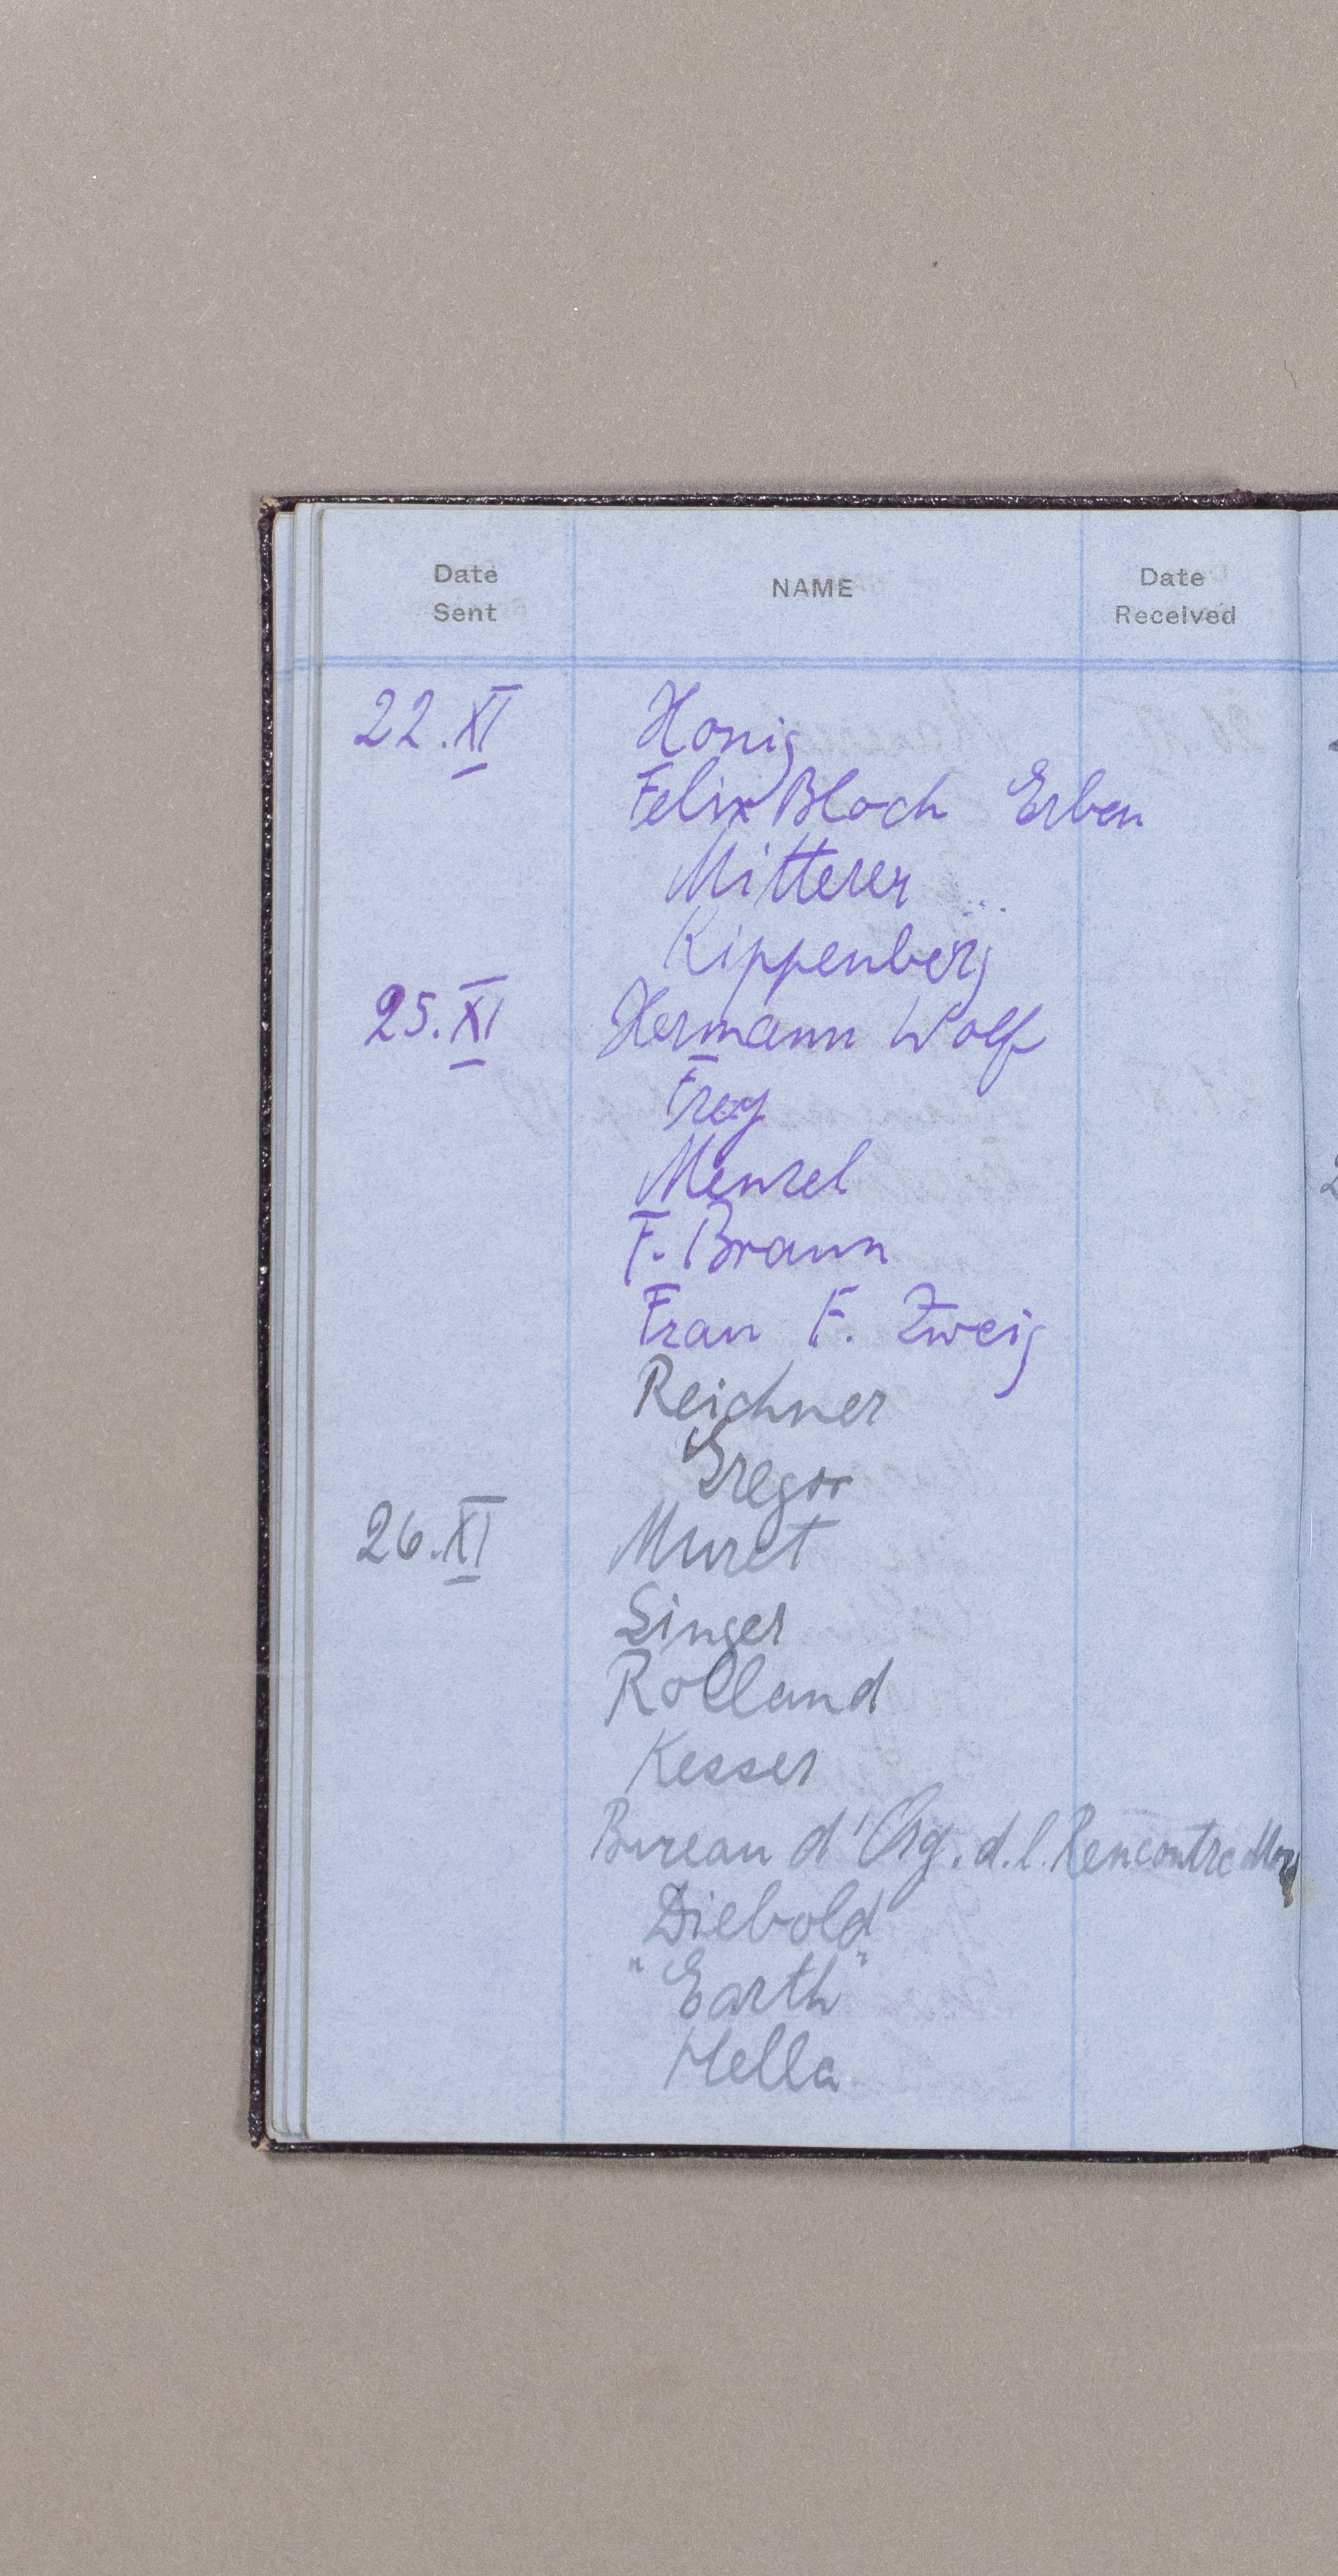 Date Sent NAME Date Received
22.XI Honig
Felix Bloch Erben
Mitterer
Kippenberg
25.XI Hermann Wolf
Frey
Menzel
F. Braun
Frau F. Zweig
Reichner
Gregor
26.XI Muret
Singer
Rolland
Kesser
Bureau d'Org. d. l. Rencontre
Diebold
"Earth"
Hella